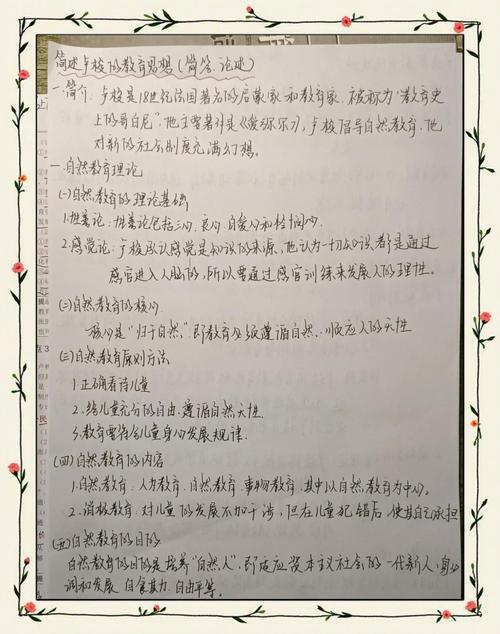 简述卢梭的教育思想(简答、论述)
一.简介:卢梭是18世纪法国著名的启蒙家和教育家,被称为"教育史
上的哥白尼",他主要著作是《爱弥尔》,卢梭倡导自然教育,他
对新的社会制度充满幻想。
一.自然教育理论
(一)自然教育的理论基础
1.性善论:性善论包括三心,良心 自爱心和怜悯心。
2.感觉论:卢梭承认感觉是知识的来源,他认为一切知识都是通过
感官进入人脑的,所以要通过感官训练来发展人的理性。
(二)自然教育的核心
核心是"归于自然",即教育必须遵循自然,顺应人的天性
(三)自然教育原则方法
1.正确看待儿童
2.给儿童充分的自由.遵循自然天性
3.教育要符合儿童身心发展规律.
(四)自然教育的内容
1.自然教育.人为教育.自然教育.事物教育.其中以自然教育为中心。
2.消极教育:对儿童的发展不加干涉,但在儿童犯错后,使其自己承担
(五)自然教育的目的
自然教育的目的是培养"自然人",即适应资本主义社会的一代新人,身心
调和发展 自食其力.自由平等.